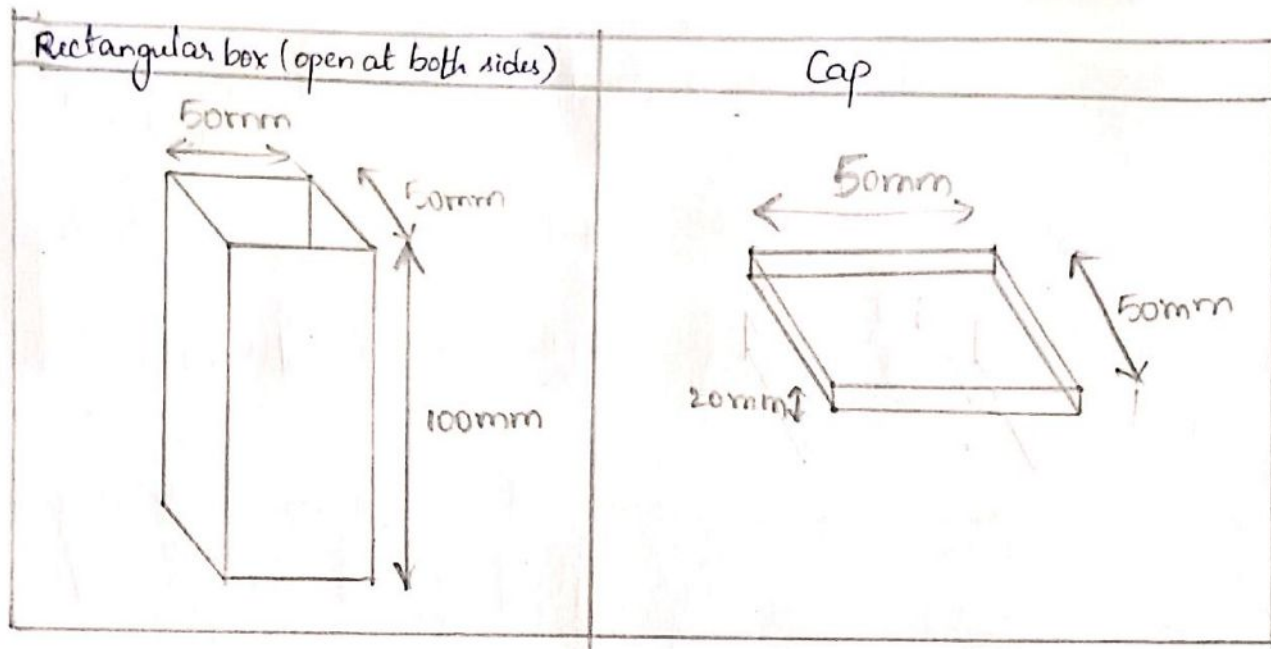 Rectangular box (open at both sides)
Cap
50mm
50mm
100mm
50mm
50mm
20mm